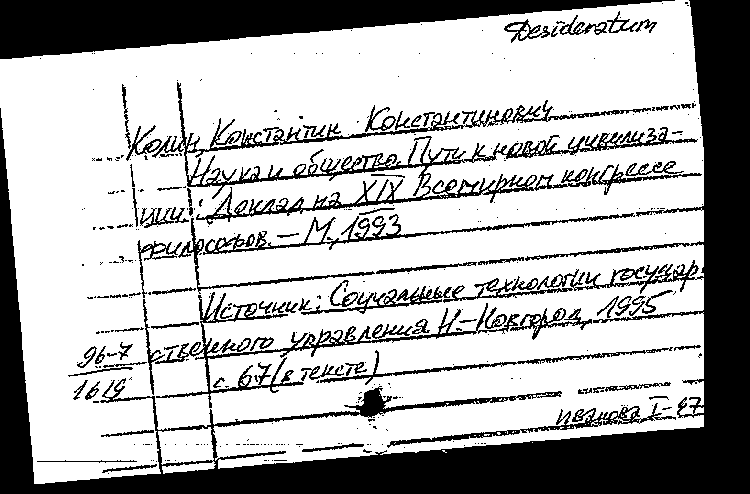 Desideratum
Колин, Константин Константинович
Наука и общество. Пути к новой цивилиза-
ции: Доклад на XIX Всемирном конгрессе
философов. – М., 1993
Источник: Социальные технологии государ-
96-7 ственного управления Н-Новгород, 1995
1619 с. 67 (в тексте)
Иванова I-97